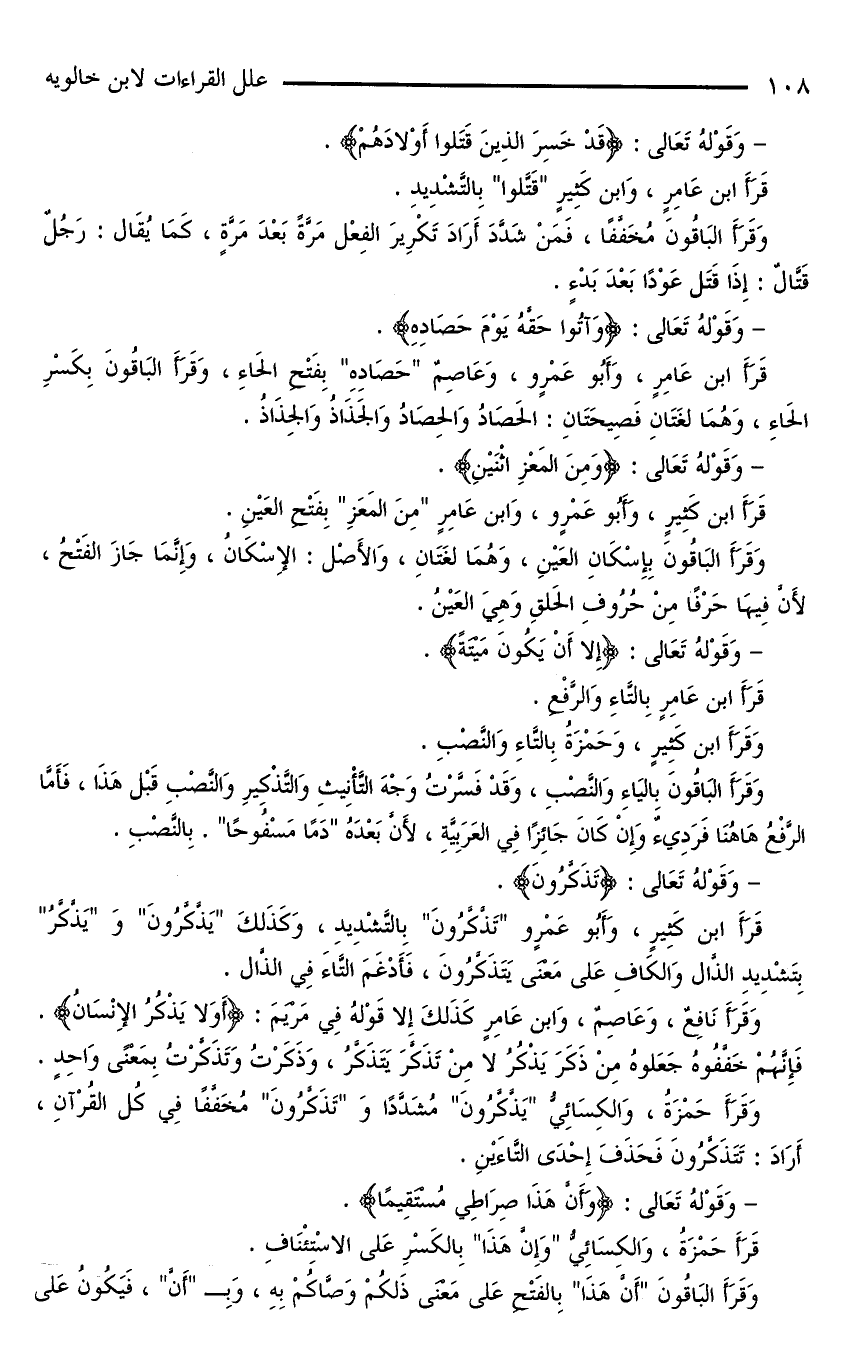 ١٠٨ علل القراءات لابن خالويه
– وَقَوْلهُ تَعَالى : ﴿قَدْ خَسِرَ الذِينَ قَتَلوا أَوْلادَهُمْ﴾ .
قَرَأَ ابن عَامِرٍ ، وَابن كَثِيرٍ "قَتَّلوا" بِالتَّشْدِيدِ .
وَقَرَأَ البَاقُونَ مُخَفَّفًا ، فَمَنْ شَدَّدَ أَرَادَ تَكْرِيرَ الفِعْل مَرَّةً بَعْدَ مَرَّةٍ ، كَمَا يُقَال : رَجُلٌ
قَتَّالٌ : إِذَا قَتَل عَوْدًا بَعْدَ بَدْءٍ .
– وَقَوْلهُ تَعَالى : ﴿وَآتُوا حَقَّهُ يَوْمَ حَصَادِهِ﴾ .
قَرَأَ ابن عَامِرٍ ، وَأَبُو عَمْرٍو ، وَعَاصِمٌ "حَصَادِهِ" بِفَتْحِ الحَاءِ ، وَقَرَأَ البَاقُونَ بِكَسْرِ
الحَاءِ ، وَهُمَا لغَتَانِ فَصِيحَتَانِ : الحَصَادُ وَالحِصَادُ وَالجَذَاذُ وَالجِذَاذُ .
– وَقَوْلهُ تَعَالى : ﴿وَمِنَ المَعْزِ اثْنَيْنِ﴾ .
قَرَأَ ابن كَثِيرٍ ، وَأَبُو عَمْرٍو ، وَابن عَامِرٍ "مِنَ المَعَزِ" بِفَتْحِ العَيْنِ .
وَقَرَأَ البَاقُونَ بِإِسْكَانِ العَيْنِ ، وَهُمَا لغَتَانِ ، وَالأَصْل : الإِسْكَانُ ، وَإِنَّمَا جَازَ الفَتْحُ ،
لأَنَّ فِيهَا حَرْفًا مِنْ حُرُوفِ الحَلقِ وَهِيَ العَيْنُ .
– وَقَوْلهُ تَعَالى : ﴿إِلا أَنْ يَكُونَ مَيْتَةً﴾ .
قَرَأَ ابن عَامِرٍ بِالتَّاءِ وَالرَّفْعِ .
وَقَرَأَ ابن كَثِيرٍ ، وَحَمْزَةُ بِالتَّاءِ وَالنَّصْبِ .
وَقَرَأَ البَاقُونَ بِاليَاءِ وَالنَّصْبِ ، وَقَدْ فَسَّرْتُ وَجْهَ التَّأْنِيثِ وَالتَّذْكِيرِ وَالنَّصْبِ قَبْل هَذَا ، فَأَمَّا
الرَّفْعُ هَاهُنَا فَرَدِيءٌ وَإِنْ كَانَ جَائِزًا فِي العَرَبِيَّةِ ، لأَنَّ بَعْدَهُ "دَمًا مَسْفُوحًا" . بِالنَّصْبِ .
– وَقَوْلهُ تَعَالى : ﴿تَذَكَّرُونَ﴾ .
قَرَأَ ابن كَثِيرٍ ، وَأَبُو عَمْرٍو "تَذَّكَّرُونَ" بِالتَّشْدِيدِ ، وَكَذَلكَ "يَذَّكَّرُونَ" وَ "يَذَّكَّرُ"
بِتَشْدِيدِ الذَّال وَالكَافِ عَلى مَعْنَى يَتَذَكَّرُونَ ، فَأَدْغَمَ التَّاءَ فِي الذَّال .
وَقَرَأَ نَافِعٌ ، وَعَاصِمٌ ، وَابن عَامِرٍ كَذَلكَ إِلا قَوْلهُ فِي مَرْيَمَ : ﴿أَوَلا يَذْكُرُ الإِنْسَانُ﴾ .
فَإِنَّهُمْ خَفَّفُوهُ جَعَلوهُ مِنْ ذَكَرَ يَذْكُرُ لا مِنْ تَذَكَّرَ يَتَذَكَّرُ ، وَذَكَرْتُ وَتَذَكَّرْتُ بِمَعْنًى وَاحِدٍ .
وَقَرَأَ حَمْزَةُ ، وَالكِسَائِيُّ "يَذَّكَّرُونَ" مُشَدَّدًا وَ "تَذَكَّرُونَ" مُخَفَّفًا فِي كُل القُرْآنِ ،
أَرَادَ : تَتَذَكَّرُونَ فَحَذَفَ إِحْدَى التَّاءَيْنِ .
– وَقَوْلهُ تَعَالى : ﴿وَأَنَّ هَذَا صِرَاطِي مُسْتَقِيمًا﴾ .
قَرَأَ حَمْزَةُ ، وَالكِسَائِيُّ "وَإِنَّ هَذَا" بِالكَسْرِ عَلى الاسْتِئْنَافِ .
وَقَرَأَ البَاقُونَ "أَنَّ هَذَا" بِالفَتْحِ عَلى مَعْنَى ذَلكُمْ وَصَّاكُمْ بِهِ ، وَبِـ "أَنَّ" ، فَيَكُونُ عَلى